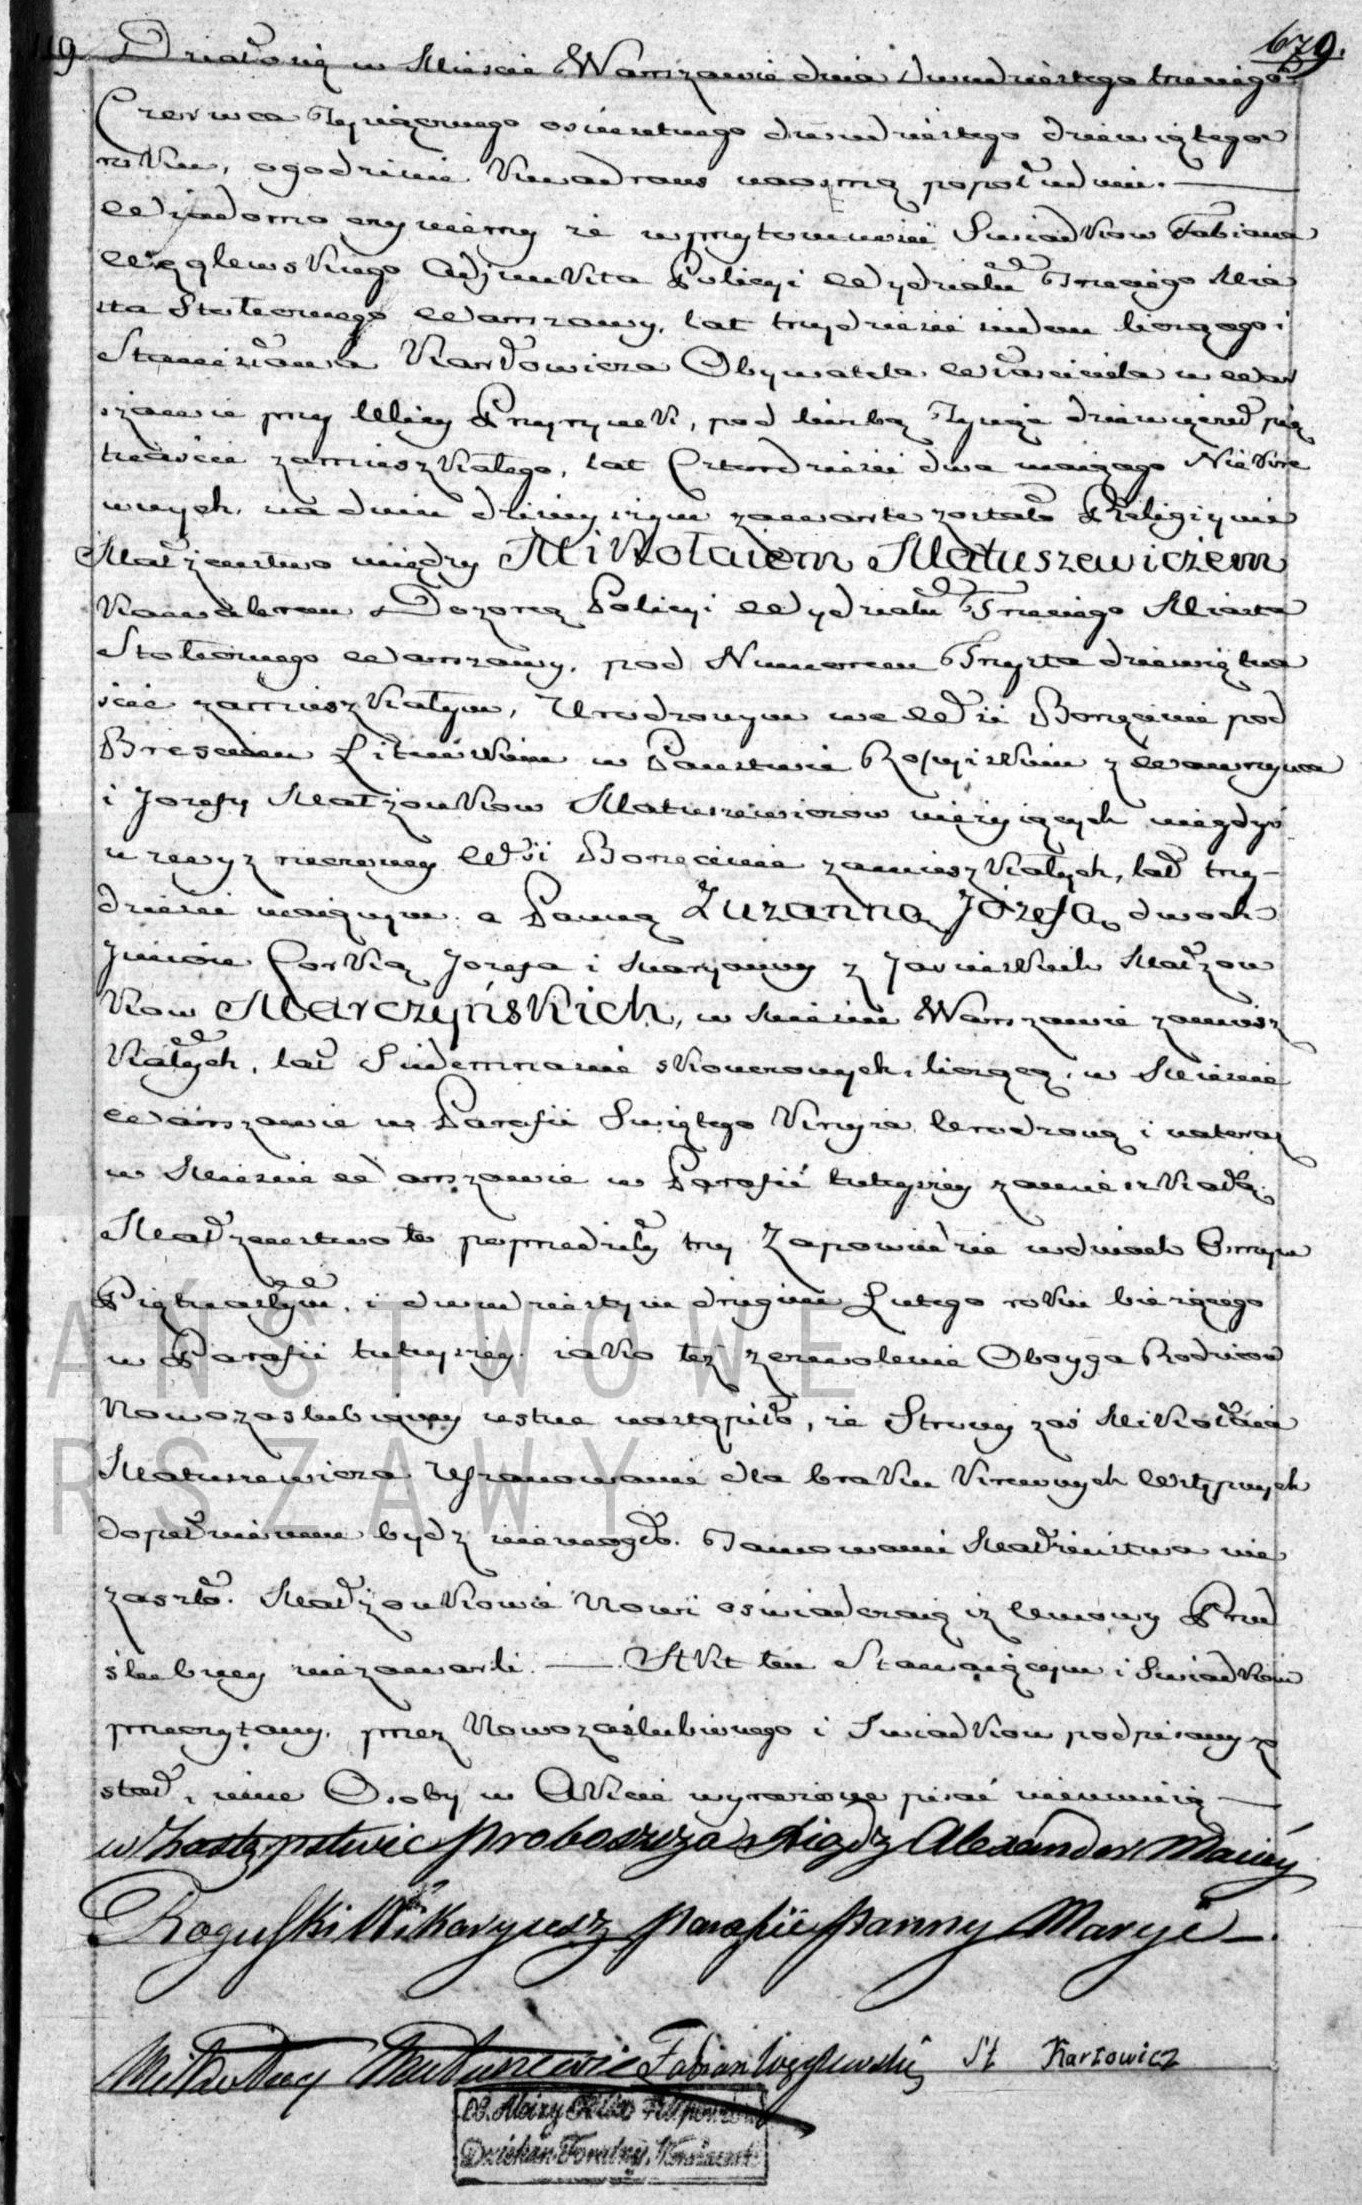 119 Działo się w Mieście Warszawie dnia dwudziestego trzeciego 679.
Czerwca Tysiącznego osiemsetnego dwudziestego dziewiątego
roku, o godzinie kwadrans na ósmą popołudniu. —
Wiadomo czyniemy że w przytomności Swiadkow Fabiana
Węglewskiego Adjunkta Policyi Wydziału Trzeciego Mia
sta Stołecznego Warszawy, lat trzydzieści siedem liczącego i
Stanisława Karłowicza Obywatela Właściciela w War
szawie przy Ulicy Przyrynek, pod liczbą Tysiąc dziewięćset pię
tnaście zamieszkałego, lat Czterdzieści dwa maiącego Niekre
wnych, na dniu dzisieyszym zawarte zostało Religiyne
Małżeństwo między Mikołaiem Matuszewiczem
Kawalerem Dozorcą Policyi Wydziału Trzeciego Miasta
Stołecznego Warszawy, pod Numerem Trzysta dziewiętna
ście zamieszkałym, Urodzonym we Wsi Borzęcinie pod
Brześciem Litewskim w Państwie Rossyiskim z Wawrzyńca
i Jozefy Małżonkow Matuszewiczow nieżyiących niegdyś
w rzeczoney Wsi Borzęcinie zamieszkałych, lat trzy-
dzieści maiącym a Panną Zuzanną Józefą dwoch
Jmion Corką Jozefa i Maryanny z Małżon
kow Marczyńskich, w Mieście Warszawie zamiesz
kałych, lat Siedemnaście skonczonych liczącą, w Mieście
Warszawie w Parafii Swiętego Krzyża Urodzoną i na teraz
w Mieście Warszawie w Parafii tuteyszey zamieszkałą.
Małżeństwo to poprzedziły trzy Zapowiedzie w dniach Osmym
Piętnastym, i dwudziestym drugim Lutego roku bieżącego
w Parafii tuteyszey. iako też zezwolenie Oboyga Rodzicow
Nowozaslubioney ustne nastąpiło, ze Strony zaś Mikołaia
Matuszewicza Uszanowanie dla braku Krewnych Wstępnych
dopełnionem bydz niemogło. Tamowanie Małżeństwa nie
zaszło. Małżonkowie Nowi oświadczaią iż Umowy Przed
ślubney niezawarli. — Akt ten Stawaiącym i Swiadkom
przeczytany, przez Nowozaślubionego i Swiadkow podpisany zo
stał, inne Osoby w Akcie wyrażone pisać nieumieią —
w Zastępstwie Proboszcza Xiądz Alexander Maciey
Rogulski Wikaryusz Parafii Panny Maryi —.
Mikołay Matuszewic Fabian Węglewski St Karłowicz
AŃSTWOWE
RSZAWY